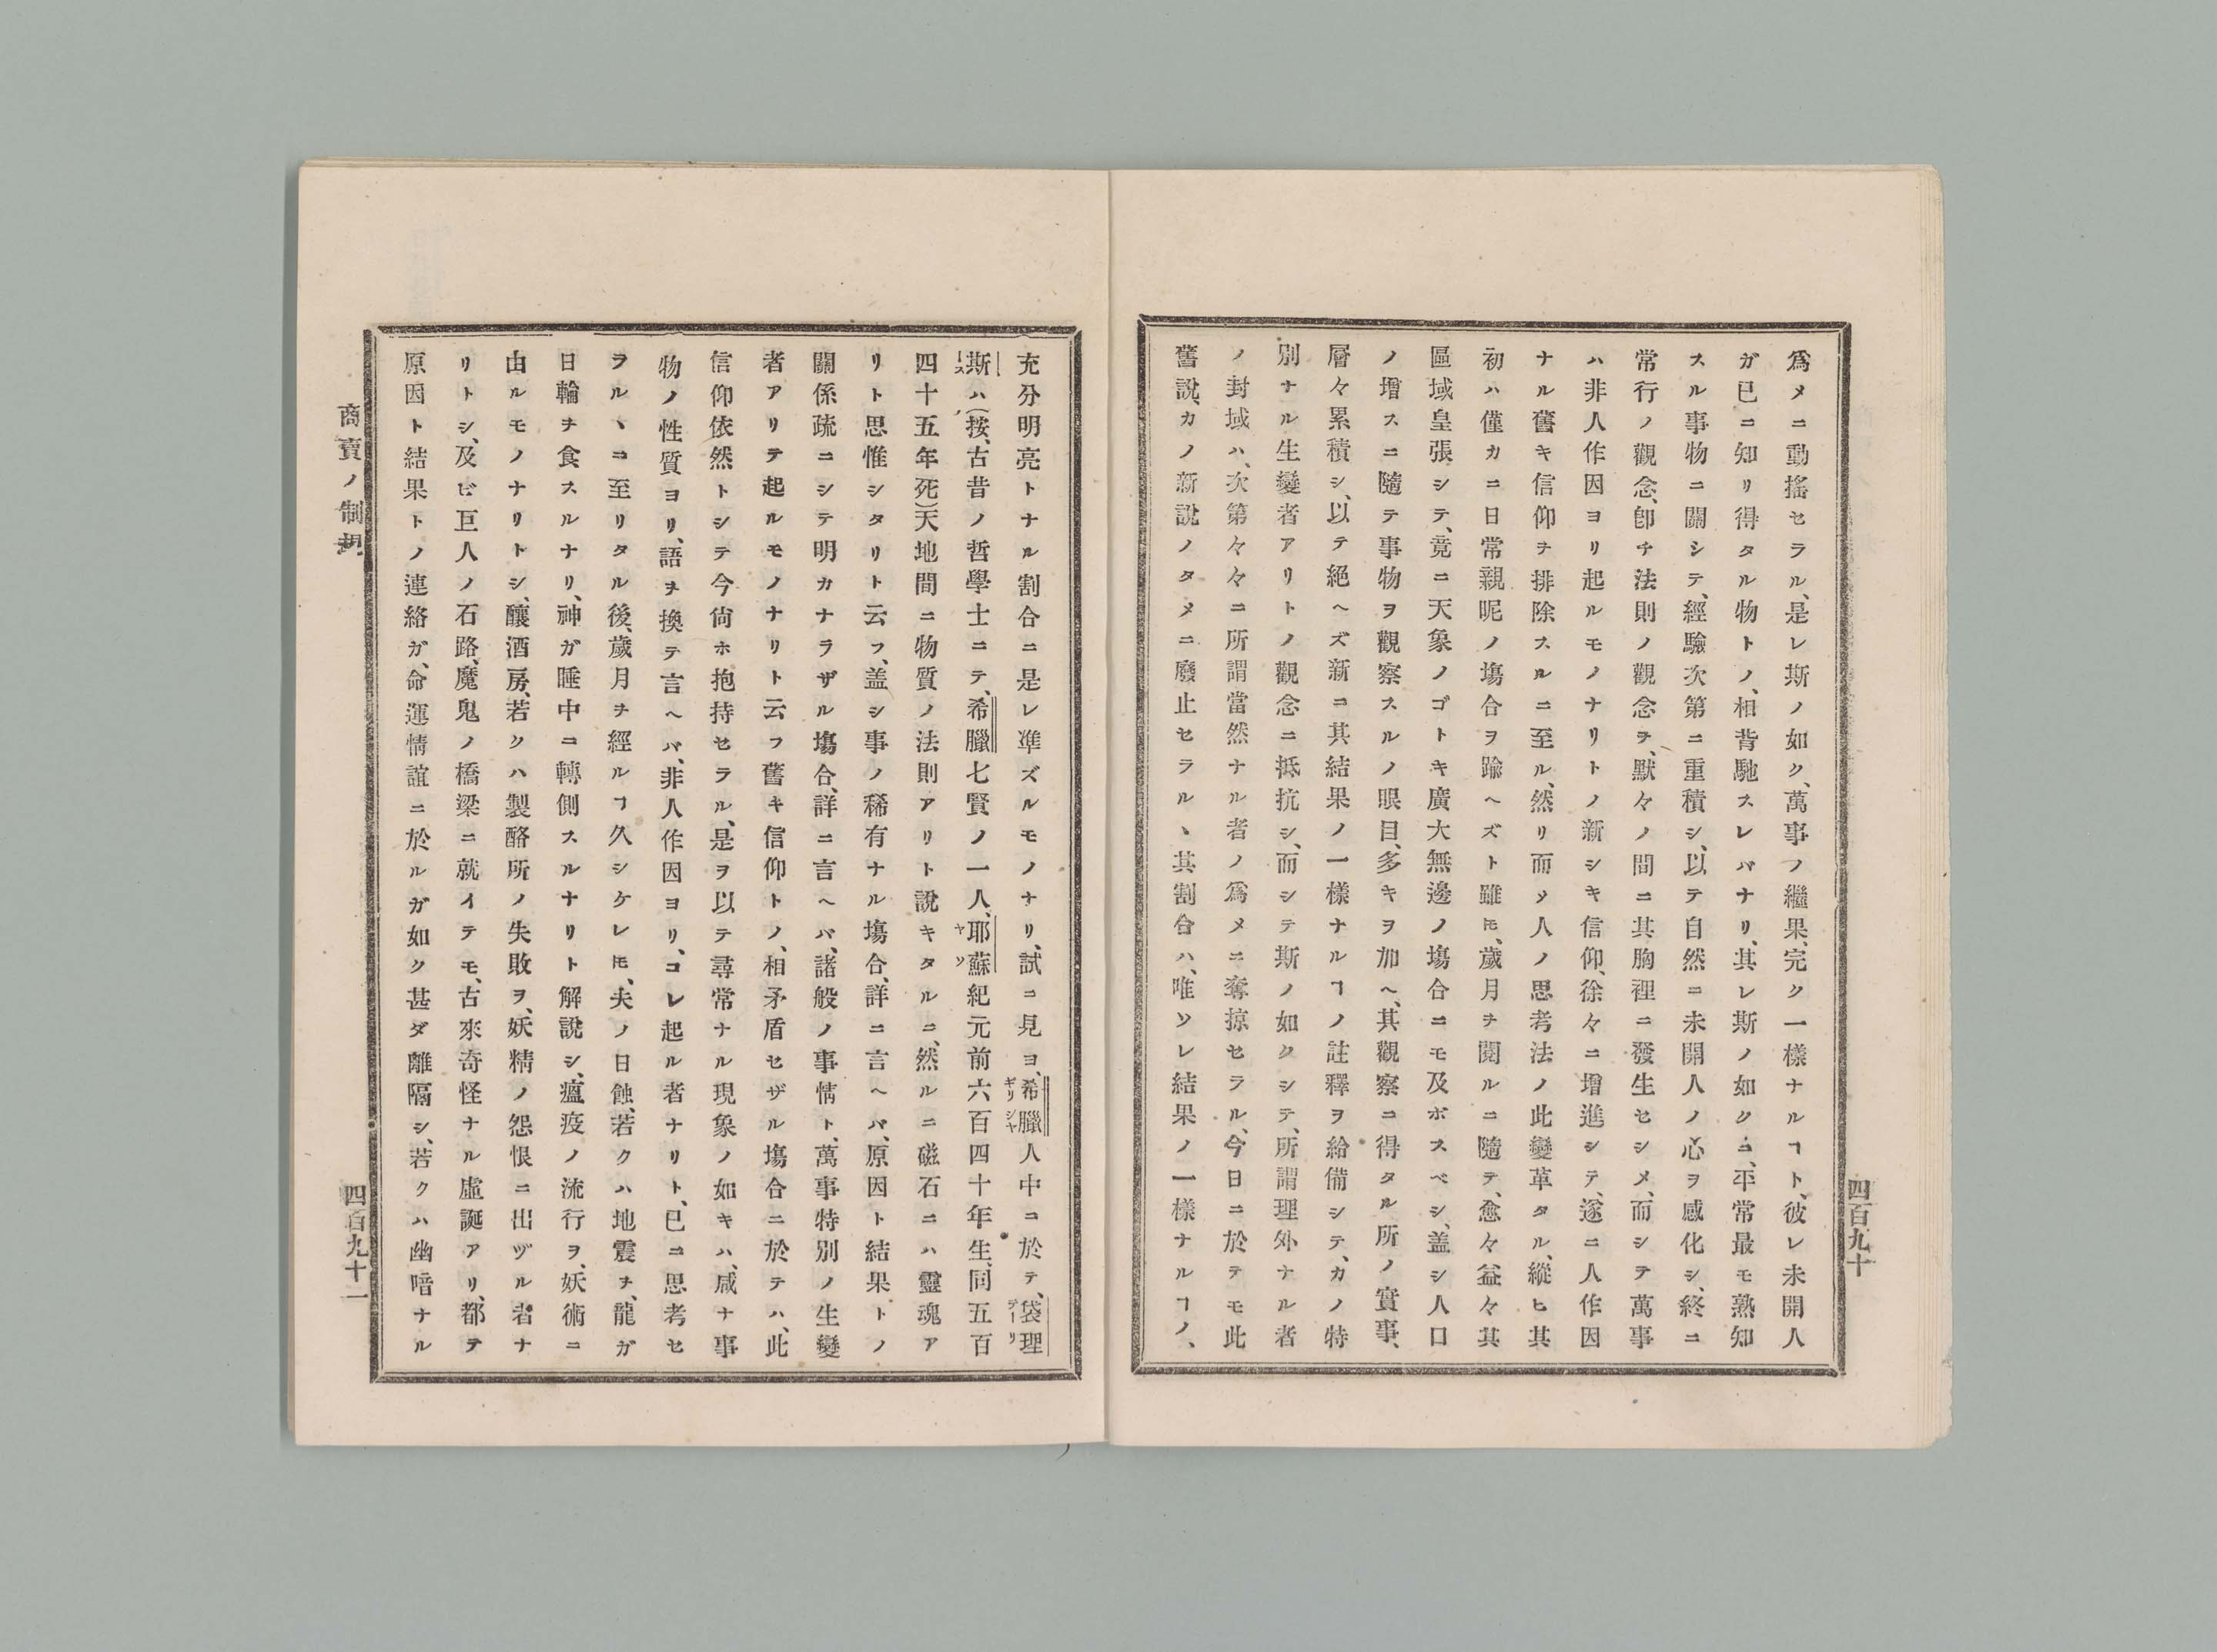 爲メニ動搖セラル、是レ斯ノ如ク、萬事ノ繼果、完ク一樣ナルヿト、彼レ未開人
ガ已ニ知リ得タル物トノ、相背馳スレバナリ、其レ斯ノ如クニ、平常最モ熟知
スル事物ニ關シテ、經驗次第ニ重積シ、以テ自然ニ未開人ノ心ヲ感化シ、終ニ
常行ノ觀念、卽チ法則ノ觀念ヲ、默々ノ間ニ其胸裡ニ發生セシメ、而シテ萬事
ハ非人作因ヨリ起ルモノナリトノ新シキ信仰、徐々ニ增進シテ、遂ニ人作因
ナル舊キ信仰ヲ排除スルニ至ル、然リ而ノ人ノ思考法ノ此變革タル、縱ヒ其
初ハ僅カニ日常親昵ノ塲合ヲ踰ヘズト雖ヒ、歲月ヲ閱ルニ隨テ、愈々益々其
區域皇張シテ、竟ニ天象ノゴトキ廣大無邊ノ塲合ニモ及ボスベシ、盖シ人口
ノ增スニ隨テ事物ヲ觀察スルノ眼目、多キヲ加ヘ、其觀察ニ得タル所ノ實事、
層々累積シ、以テ絕ヘズ新ニ其結果ノ一樣ナルヿノ註釋ヲ給備シテ、カノ特
別ナル生變者アリトノ觀念ニ抵抗シ、而シテ斯ノ如クシテ、所謂理外ナル者
ノ封域ハ、次第々々ニ所謂當然ナル者ノ爲メニ奪掠セラル、今日ニ於テモ此
舊說、カノ新說ノタメニ廢止セラル、其割合ハ、唯ソレ結果ノ一樣ナルヿノ、
四百九十
充分明亮トナル割合ニ是レ準ズルモノナリ、試ニ見ヨ、希臘人中ニ於テ、袋理
ギリシヤ
テーリ
斯ハ(按、古昔ノ哲學士ニテ、希臘七賢ノ一人、耶蘇紀元前六百四十年生、同五百
ース
ヤソ
四十五年死)天地間ニ物質ノ法則アリト說キタルニ、然ルニ磁石ニハ靈魂ア
リト思惟シタリト云フ、盖シ事ノ稀有ナル塲合、詳ニ言ヘバ、原因ト結果トノ
關係疏ニシテ明カナラザル塲合、詳ニ言ヘバ、諸般ノ事情ト、萬事特別ノ生變
者アリテ起ルモノナリト云フ舊キ信仰トノ、相矛盾セザル塲合ニ於テハ、此
信仰依然トシテ今尙ホ抱持セラル、是ヲ以テ尋常ナル現象ノ如キハ、咸ナ事
物ノ性質ヨリ、語ヲ換テ言ヘバ、非人作因ヨリ、コレ起ル者ナリト、已ニ思考セ
ヲル、ニ至リタル後、歲月ヲ經ルヿ久シケレヒ、夫ノ日蝕、若クハ地震ヲ、龍ガ
日輪ヲ食スルナリ、神ガ睡中ニ轉側スルナリト解說シ、瘟疫ノ流行ヲ、妖術ニ
由ルモノナリトシ、釀酒房、若クハ製酪所ノ失敗ヲ、妖精ノ怨恨ニ出ヅル者ナ
リトシ、及ビ巨人ノ石路、魔鬼ノ橋梁ニ就イテモ、古來奇怪ナル虛誕アリ、都テ
原因ト結果トノ連絡ガ、命運情誼ニ於ルガ如ク甚ダ離隔シ、若クハ幽暗ナル
商賣ノ制規
四百九十一